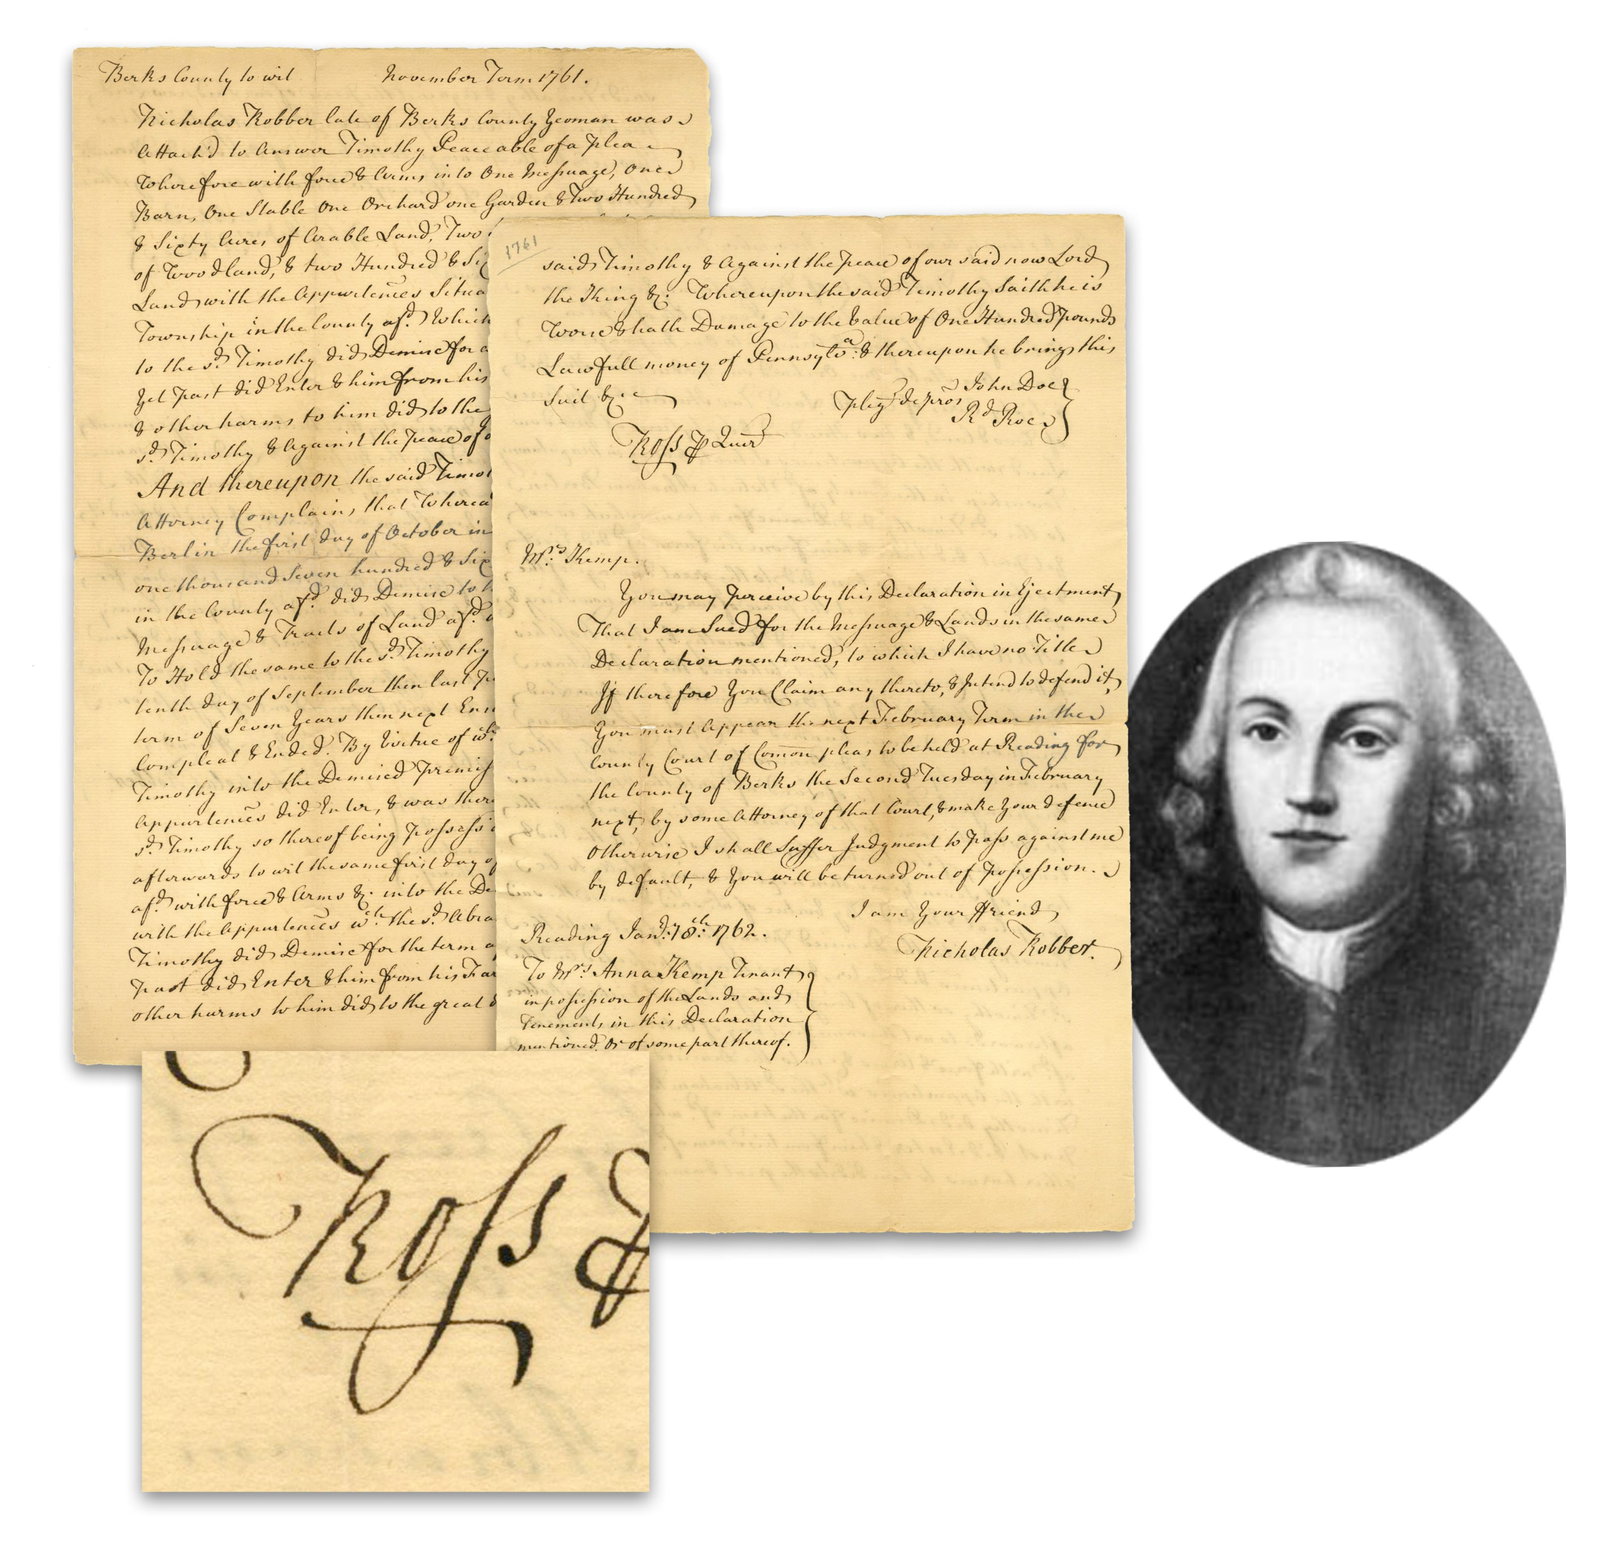 Berks County to wit November Term 1761.
Nicholas Robber late of Berks County Yeoman was
Attach'd to Answer Timothy Peaceable of a Plea
Wherefore with force & Arms into One Messuage, One
Barn, One Stable One Orchard one Garden & Two Hundred
& Sixty Acres of Arable Land, Two
of Woodland, & two Hundred & Six
Land with the Appurtences Situa
Township in the County afd. Which
to the sd. Timothy did Demise for a
yet Past did Enter & him from his
& other harms to him did to the
sd. Timothy & Against the Peace of o
And thereupon the said Timot
Attorney Complains that Wherea
Berlin the first day of October in
one thousand Seven hundred & Six
in the County afd. did Demise to t
Messuage & Tracts of Land afd. a
To Hold the same to the sd. Timothy
tenth day of September then last P
term of Seven Years then next Ens
Compleat & Ended. By Virtue of wh.
Timothy into the Demised Premis
Appurtences did Enter, & was there
sd. Timothy so thereof being Possess'd
afterwards to wit the same first day of
afd. with force & Arms &c. into the De
with the Appurtences wch. the sd. Abra
Timothy did Demise for the term a
Past did Enter & him from his Far
other harms to him did to the great
1761
said Timothy & Against the Peace of our said now Lord
the King &c. Whereupon the said Timothy Saith he is
Worse & hath Damage to the Value of One Hundred Pounds
Lawfull money of Pennsylva. & thereupon he brings this
Suit &c
Pleg. de Pros John Doe
Rd. Roe
Ross P Quer
Mrs. Kemp.
You may Perceive by this Declaration in Ejectment
That I am Sued for the Messuage & Lands in the same
Declaration mentioned, to which I have no Title
If therefore You Claim any thereto, & Intend to defend it,
You must Appear the next February Term in the
County Court of Comon pleas to be held at Reading for
the County of Berks the Second Tuesday in February
next, by some Attorney of that Court, & make Your defence
Otherwise I shall Suffer Judgment to Pass against me
by default, & You will be turned out of Possession.
I am Your ffriend
Reading Jany. 18th. 1762.
Nicholas Robber.
To Mrs. Anna Kemp Tenant
in possession of the Lands and
Tenements in this Declaration
mentioned. Or of some part thereof.
Ross P